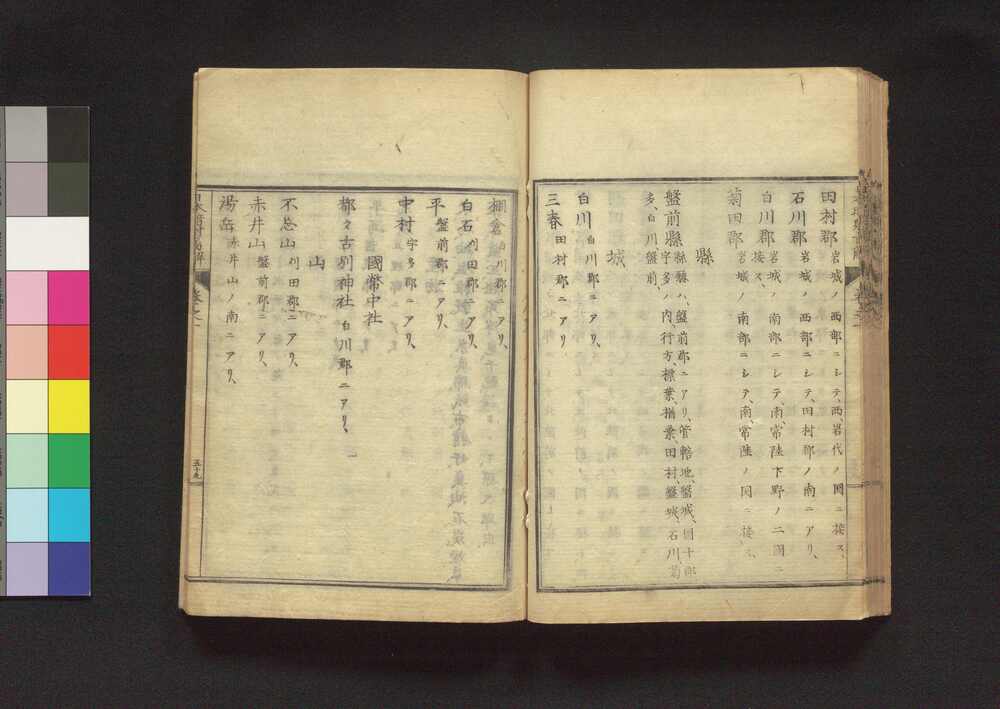 田村郡 岩城ノ西部ニシテ、西、岩代ノ国ニ接ス、
石川郡 岩城ノ西部ニシテ、田村郡ノ南ニアリ、
白川郡 岩城、南部ニシテ、南、常陸下野ノ二国ニ接ス、
菊田郡 岩城ノ南部ニシテ、南、常陸ノ国ニ接ス、
縣
盤前縣 縣廳ハ、盤前郡ニアリ、管轄地、盤城、国十郡
宇多ノ内、行方、標葉、楢葉、田村、盤城、石川、菊
多、白川、盤前、
城
白川 白川郡ニアリ、
三春 田村郡ニアリ
棚倉 白川郡ニアリ、
白石 刈田郡ニアリ、
平 盤前郡ニアリ、
中村 宇多郡ニアリ、
國幣中社
都々古別神社 白川郡ニアリ、
山
不忘山 刈田郡ニアリ、
赤井山 盤前郡ニアリ、
湯岳 赤井山ノ南ニアリ、
五十九